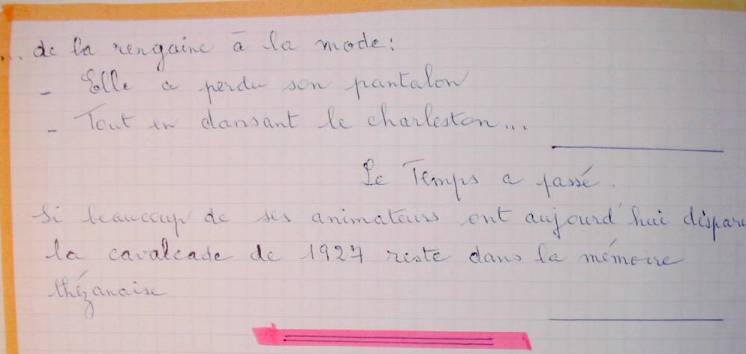 ... de la rengaine à la mode:
- Elle a perdu son pantalon
- Tout en dansant le charleston...
Le Temps a passé.
Si beaucoup de ses animateurs ont aujourd'hui dispary
la cavalcade de 1927 reste dans la mémoire
thézanaise